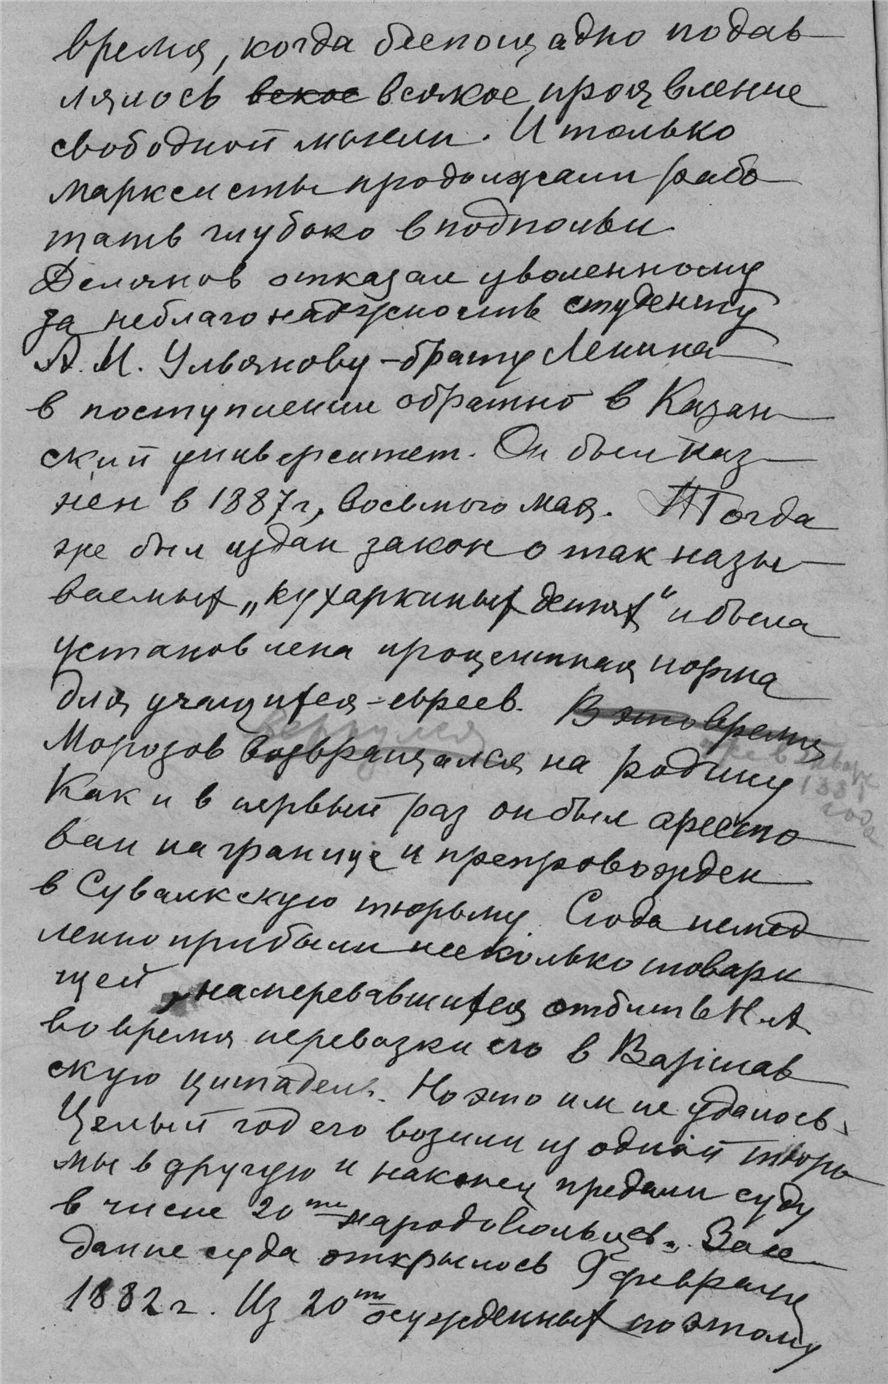 время, когда беспощадно подав
лялось всякое проявление
свободной мысли. И только
марксисты продолжали рабо
тать глубоко в подпольи.
Делянов отказал уволенному
за неблагонадежность студенту
А. И. Ульянову – брату Ленина
в поступлении обратно в Казан
ский университет. Он был каз
нен в 1887 г, восьмого мая. Тогда
же был издан закон о так назы
ваемых „кухаркиных детях" и была
установлена процентная норма
для учащихся – евреев. В это время
вернулся
Морозов возвращался на родину
в январе
1881
года
Как и в первый раз он был аресто
ван на границе и препровожден
в Сувалкскую тюрьму. Сюда немед
ленно прибыли несколько товари
щей, намеревавшихся отбить Н.А.
во время перевозки его в Варшав
скую цитадель. Но это им не удалось.
Целый год его возили из одной тюрь
мы в другую и наконец предали суду
в числе 20ти народовольцев. Засе
дание суда открылось 9 февраля
1882 г. Из 20ти осужденных по этому